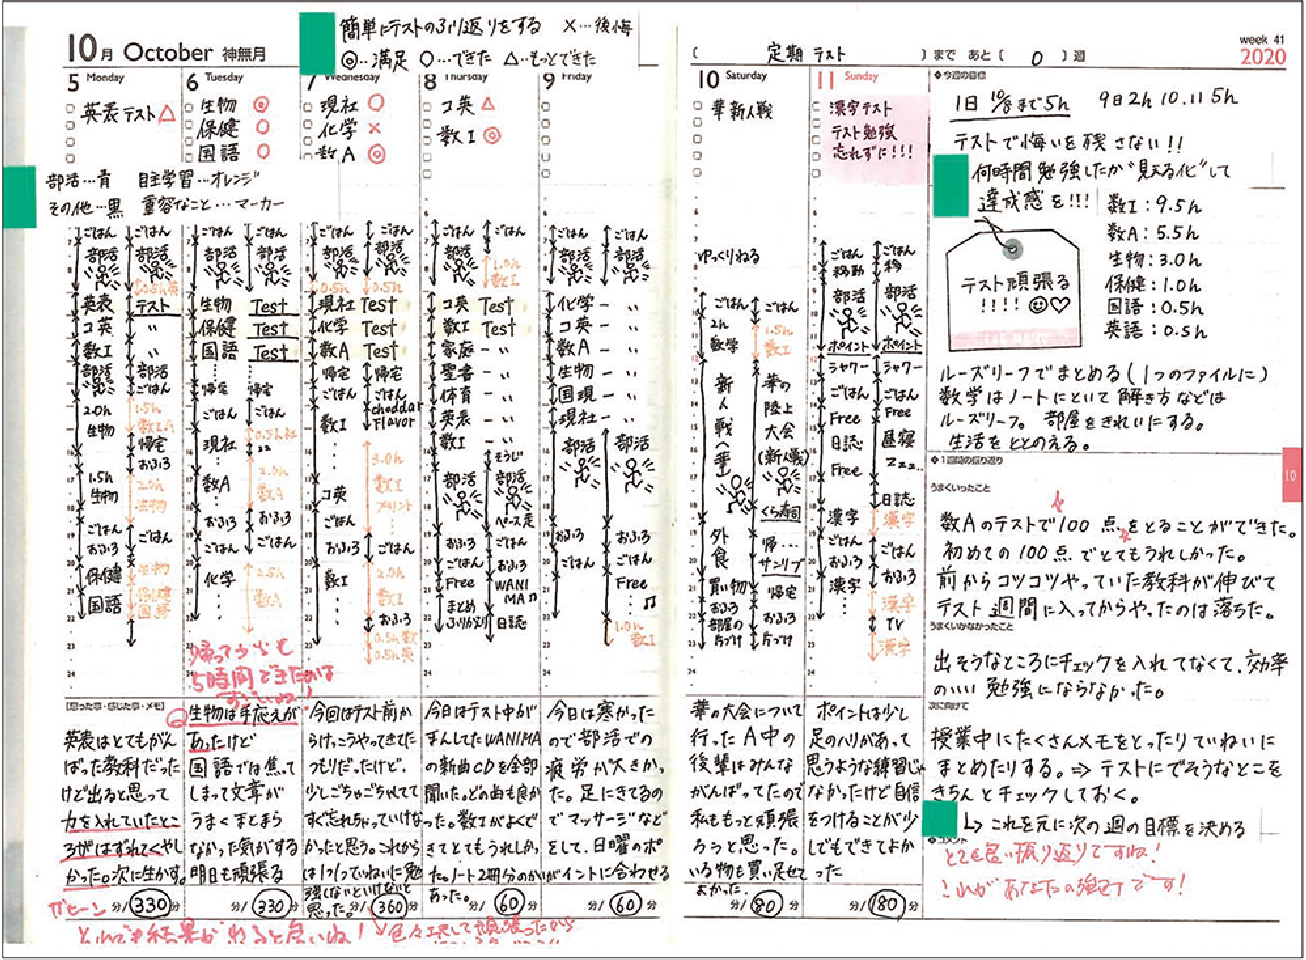 簡単にテストのふり返りをする ×…後悔
◎…満足 ○…できた △…もっとできた
10月 October 神無月
5 Monday
6 Tuesday
7 Wednesday
8 Thursday
9 Friday
英表テスト△
生物◎
保健○
国語○
現社○
化学×
数A◎
コ英△
数I◎
部活…青 自主学習…オレンジ
その他…黒 重要なこと…マーカー
ごはん
部活
0.5h英
英表 テスト
コ英 〃
数I 〃
部活
ごはん
2.0h
生物
1.5h
数IA
帰宅
おふろ
1.5h
生物
2.0h
生物
ごはん
おふろ
保健
国語
ごはん
生物
保健
国語
ごはん
部活
生物 Test
保健 Test
国語 Test
帰宅
ごはん
現社
数A
おふろ
ごはん
化学
帰宅
ごはん
0.5h社
2.0h
数A
おふろ
ごはん
2.5h
数A
ごはん
部活
0.5h
現社 Test
化学 Test
数A Test
帰宅
ごはん
数I
コ英
ごはん
おふろ
数I
帰宅
cheddar
Flavor
3.0h
数I
プリント
ごはん
2.0h
数I
おふろ
0.5h数
0.5h英
ごはん
部活
1.0h
数I
コ英 Test
数I Test
家庭 - 〃
聖書 - 〃
体育 - 〃
英表 - 〃
数I
そうじ
部活
ペース走
おふろ
ごはん
Free
まとめ
ふりかえり
ごはん
おふろ
WANI
MA♫
日誌
ごはん
部活
化学 - 〃
コ英 - 〃
数A - 〃
生物 - 〃
国現 - 〃
現社 - 〃
部活
おふろ
ごはん
Free
♫
1.0h
数I
帰ってから も
5時間できたのは
すごいね!
【思った事・感じた事・メモ】
英表はとてもがん
ばった教科だった
けど出ると思って
力を入れていたとこ
ろがはずれてくやし
かった。次に生かす。
生物は手応えが
あったけど
国語では焦って
しまって文章が
うまくまとまら
なかった気がする
明日も頑張る
今回はテスト前か
らけっこうやってきてた
つもりだったけど、
少しごちゃごちゃしてて
すぐ忘れちゃっていけな
かったと思う。これから
は1つ1つていねいに勉
強しないといけないと
思った。
今日はテスト中が
まんしてたWANIMA
の新曲CDを全部
聞いた。どの曲も良か
った。数Iがよくで
きてとてもうれしかっ
た。ノート2冊分のかいが
あった。
今日は寒かった
ので部活での
疲労が大きかっ
た。足にきてるの
でマッサージなど
をして、日曜のポ
イントに合わせる
分/330分
分/330分
分/360分
分/60分
分/60分
ガビーン
それでも結果が出ると良いね!
色々工夫して頑張ったから
( 定期テスト )まで あと( 0 )週
week 41
2020
10 Saturday
11 Sunday
華 新人戦
漢字テスト
テスト勉強
忘れずに!!!
ゆっくりねる
ごはん
2h
数学
新人戦へ華
外食
買い物
おふろ
部屋の
片づけ
ごはん
1.5h
数I
華の
陸上
大会
(新人戦)
くら寿司
帰…
サンリブ
帰宅
おふろ
片づけ
ごはん
移動
部活
ポイント
シャワー
ごはん
Free
日誌
Free
漢字
おふろ
漢字
ごはん
部活
ポイント
シャワー
ごはん
Free
昼寝
Zzz..
日誌
漢字
ごはん
おふろ
漢字
TV
漢字
華の大会について
行った A中の
後輩はみんな
がんばってたので
私ももっと頑張
ろうと思った。
いる物も買い足せて
よかった。
ポイントは少し
足のハリがあって
思うような練習じゃ
なかったけど自信
をつけることが少
しでもできてよか
った
分/90分
分/180分
◆今週の目標
1日 10/8まで5h 9日2h 10.11 5h
テストで悔いを残さない!!
何時間勉強したか“見える化”して
達成感を!!!
テスト頑張る
!!!!☺♡
数I:9.5h
数A:5.5h
生物:3.0h
保健:1.0h
国語:0.5h
英語:0.5h
ルーズリーフでまとめる(1つのファイルに)
数学はノートにといて解き方などは
ルーズリーフ。部屋をきれいにする。
生活をととのえる。
◆1週間の振り返り
うまくいったこと
数Aのテストで100点をとることができた。
初めての100点でとてもうれしかった。
前からコツコツやっていた教科が伸びて
テスト週間に入ってからやったのは落ちた。
うまくいかなかったこと
出そうなところにチェックを入れてなくて、効率
のいい勉強にならなかった。
次に向けて
授業中にたくさんメモをとったりていねいに
まとめたりする。⇒テストにでそうなとこを
きちんとチェックしておく。
↳これを元に次の週の目標を決める
◆コメント
とても良い振り返りですね!
これがあなたの強みです!
10